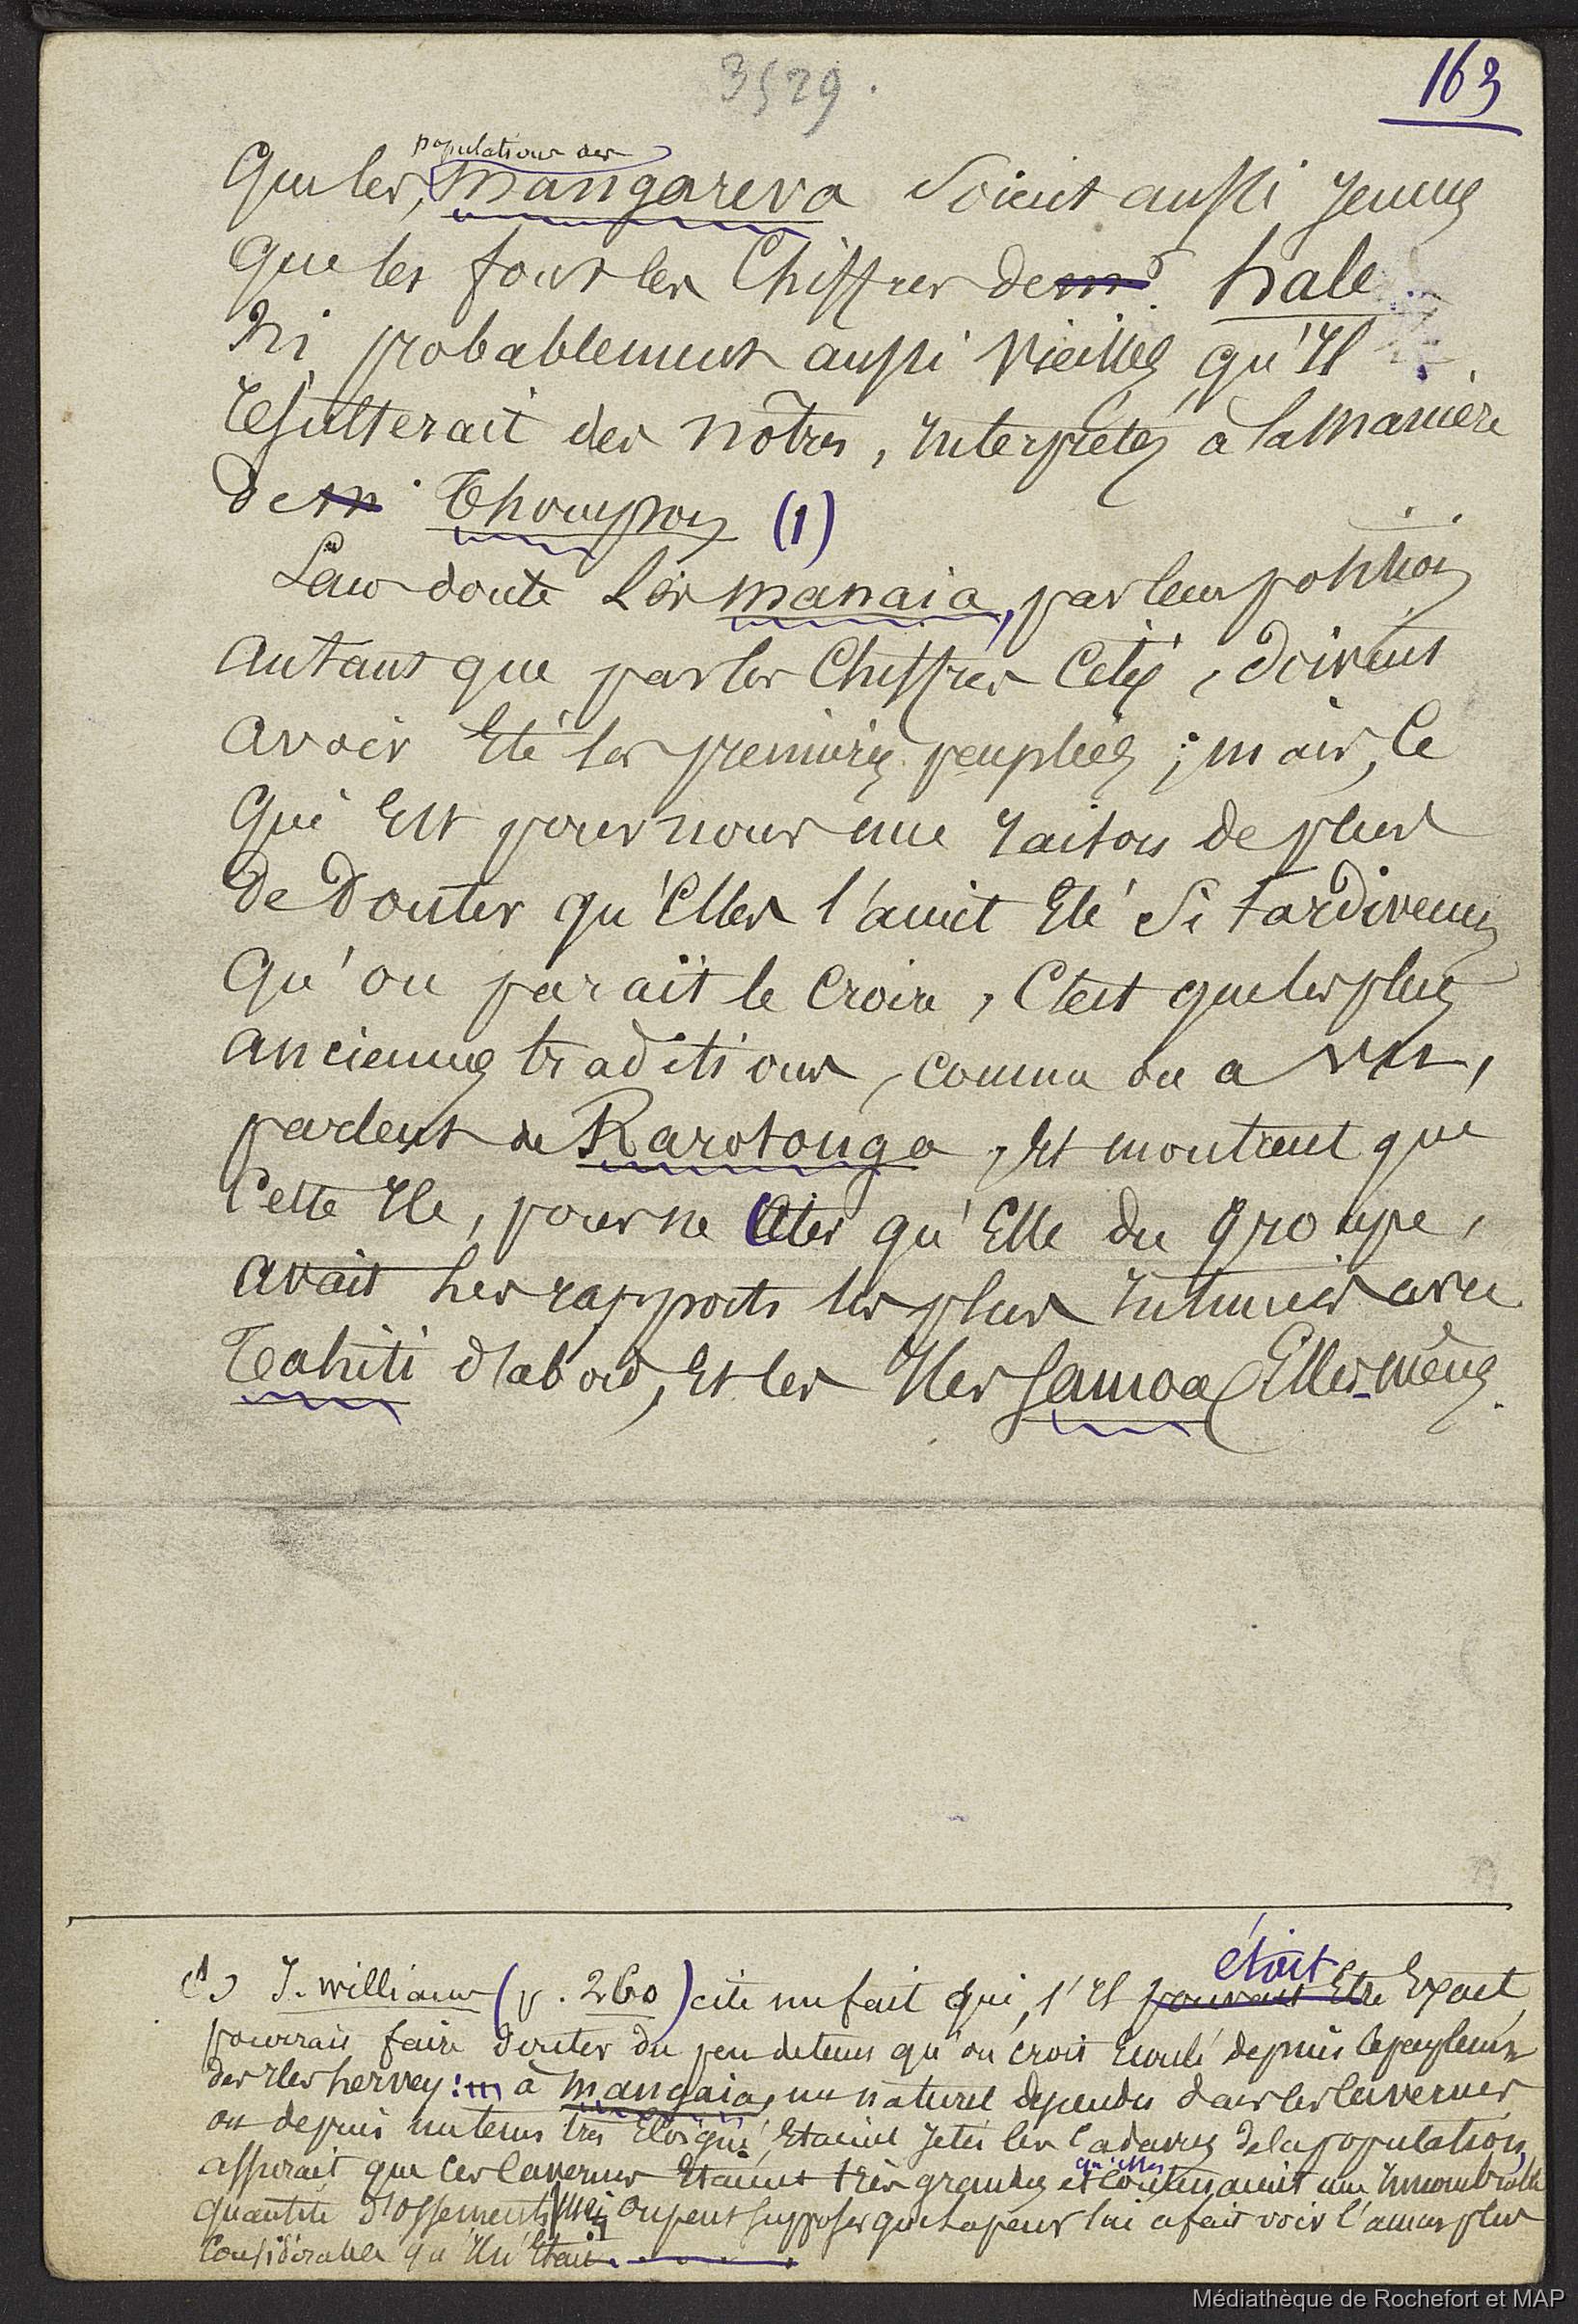 3529.
163
populations des
que les Mangareva soient aussi jeunes
que les font les chiffres de M.r Hale
ni probablement aussi vieilles qu'il
résulterait des nôtres, interprétés à la manière
de M. Thompson (1)
Sans doute les Manaia, par leur position
autant que par les chiffres cités, doivent
avoir été les premières peuplées ; mais, ce
qui est pour nous une raison de plus
de douter qu'elles l'aient été si tardivement
qu'on paraît le croire, c'est que les plus
anciennes traditions, comme on a vu,
parlent de Rarotonga, et montrent que
cette île, pour ne citer qu'elle du groupe,
avait des rapports les plus intimes avec
Tahiti d'abord, et les îles Samoa elles-mêmes.
était
(1) J. Williams (p. 260) cite un fait qui, s'il pouvait être exact,
pourrait faire douter du peu de tems qu'on croit écoulé depuis le peuplement
des îles Hervey : à Mangaia, un naturel descendu dans les cavernes
où depuis un tems très éloigné, étaient jetés les cadavres de la population,
qu'elles
assurait que ces cavernes étaient très grandes et contenaient une innombrable
quantité d'ossements mais on peut supposer que la peur lui a fait voir l'amas plus
considérable qu'il n'était.
Médiathèque de Rochefort et MAP